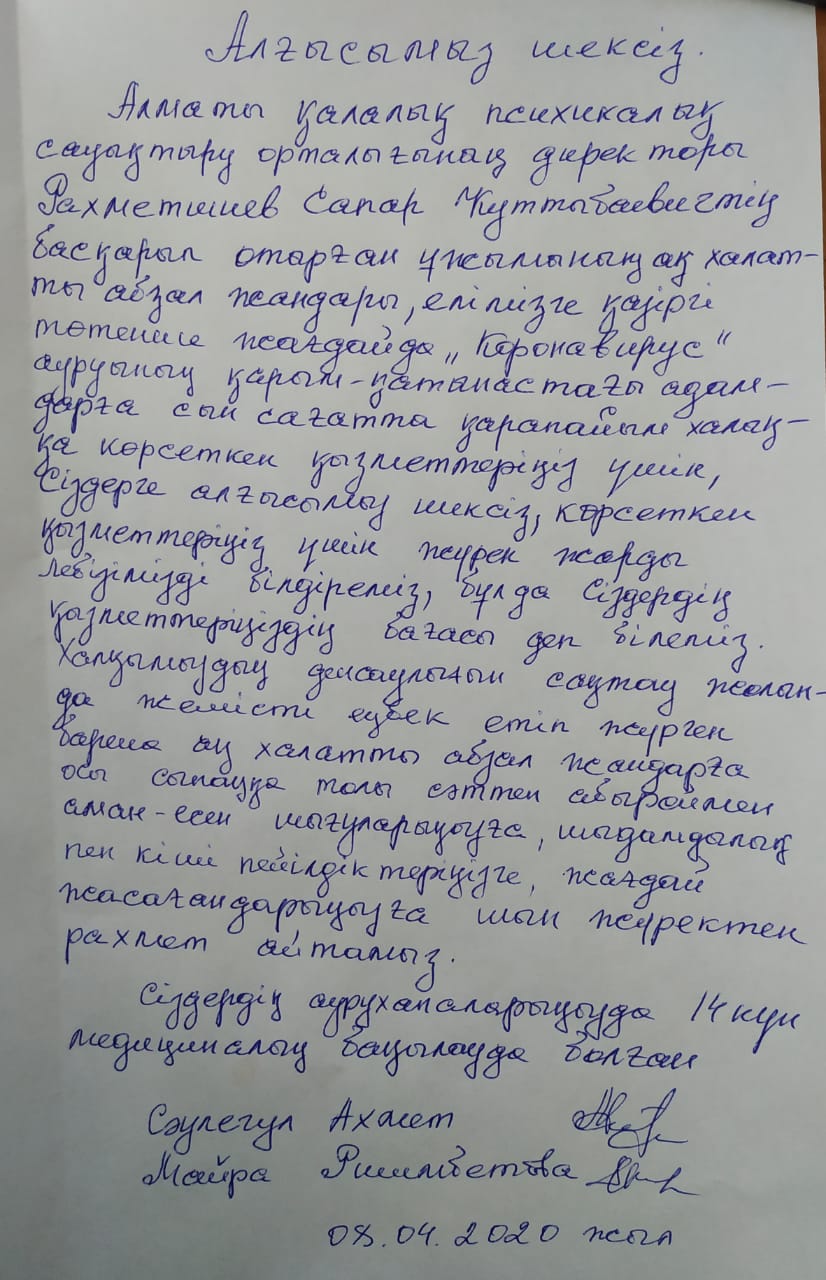 Алғысымыз шексіз.
Алматы қалалық психикалық
сауықтыру орталығының директоры
Рахметишев Сапар Құттыбаевичтің
басқарып отырған ұжымының ақ халат-
ты абзал жандары, елімізге қазіргі
төтенше жағдайда „Коронавирус"
ауруының қарым-қатынастағы адам-
дарға сын сағатта қарапайым халық-
қа көрсеткен қызметтеріңіз үшін,
Сіздерге алғысымыз шексіз, көрсеткен
қызметтеріңіз үшін жүрек жарды
лебізімізді білдіреміз, бұл да Сіздердің
қызметтеріңіздің бағасы деп білеміз.
Халқымыздың денсаулығын сақтау жолын-
да жемісті еңбек етіп жүрген
барша ақ халатты абзал жандарға
осы сынаққа толы сәттен абыроймен
аман-есен шығуларыңызға, шыдамдылық
пен кіші пейілдіктеріңізге, жағдай
жасағандарыңызға шын жүректен
рахмет айтамыз.
Сіздердің ауруханаларыңызда 14 күн
медициналық бақылауда болған
Сәулегүл Ахмет
Майра Ришимбетова
08.04.2020 жыл